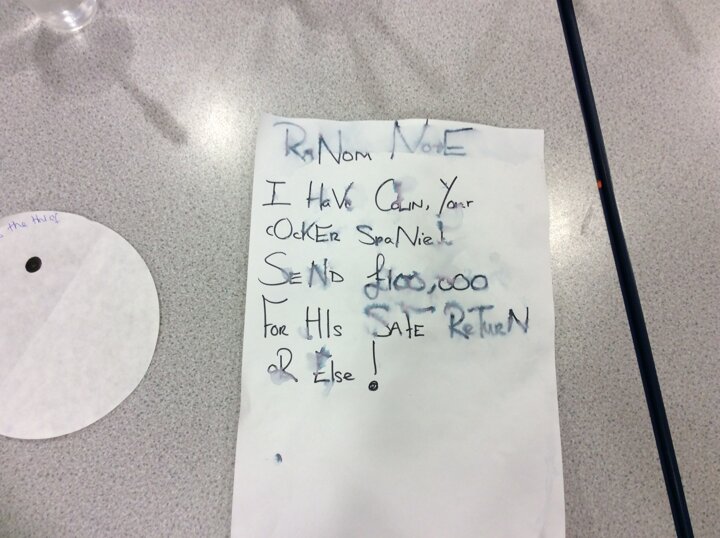 RaNom NotE
I HaVe CoLIN, Your
cOcKER SpaNiel
SEND £100,000
FoR HIs SAfE ReTurN
oR Else!
the lid of